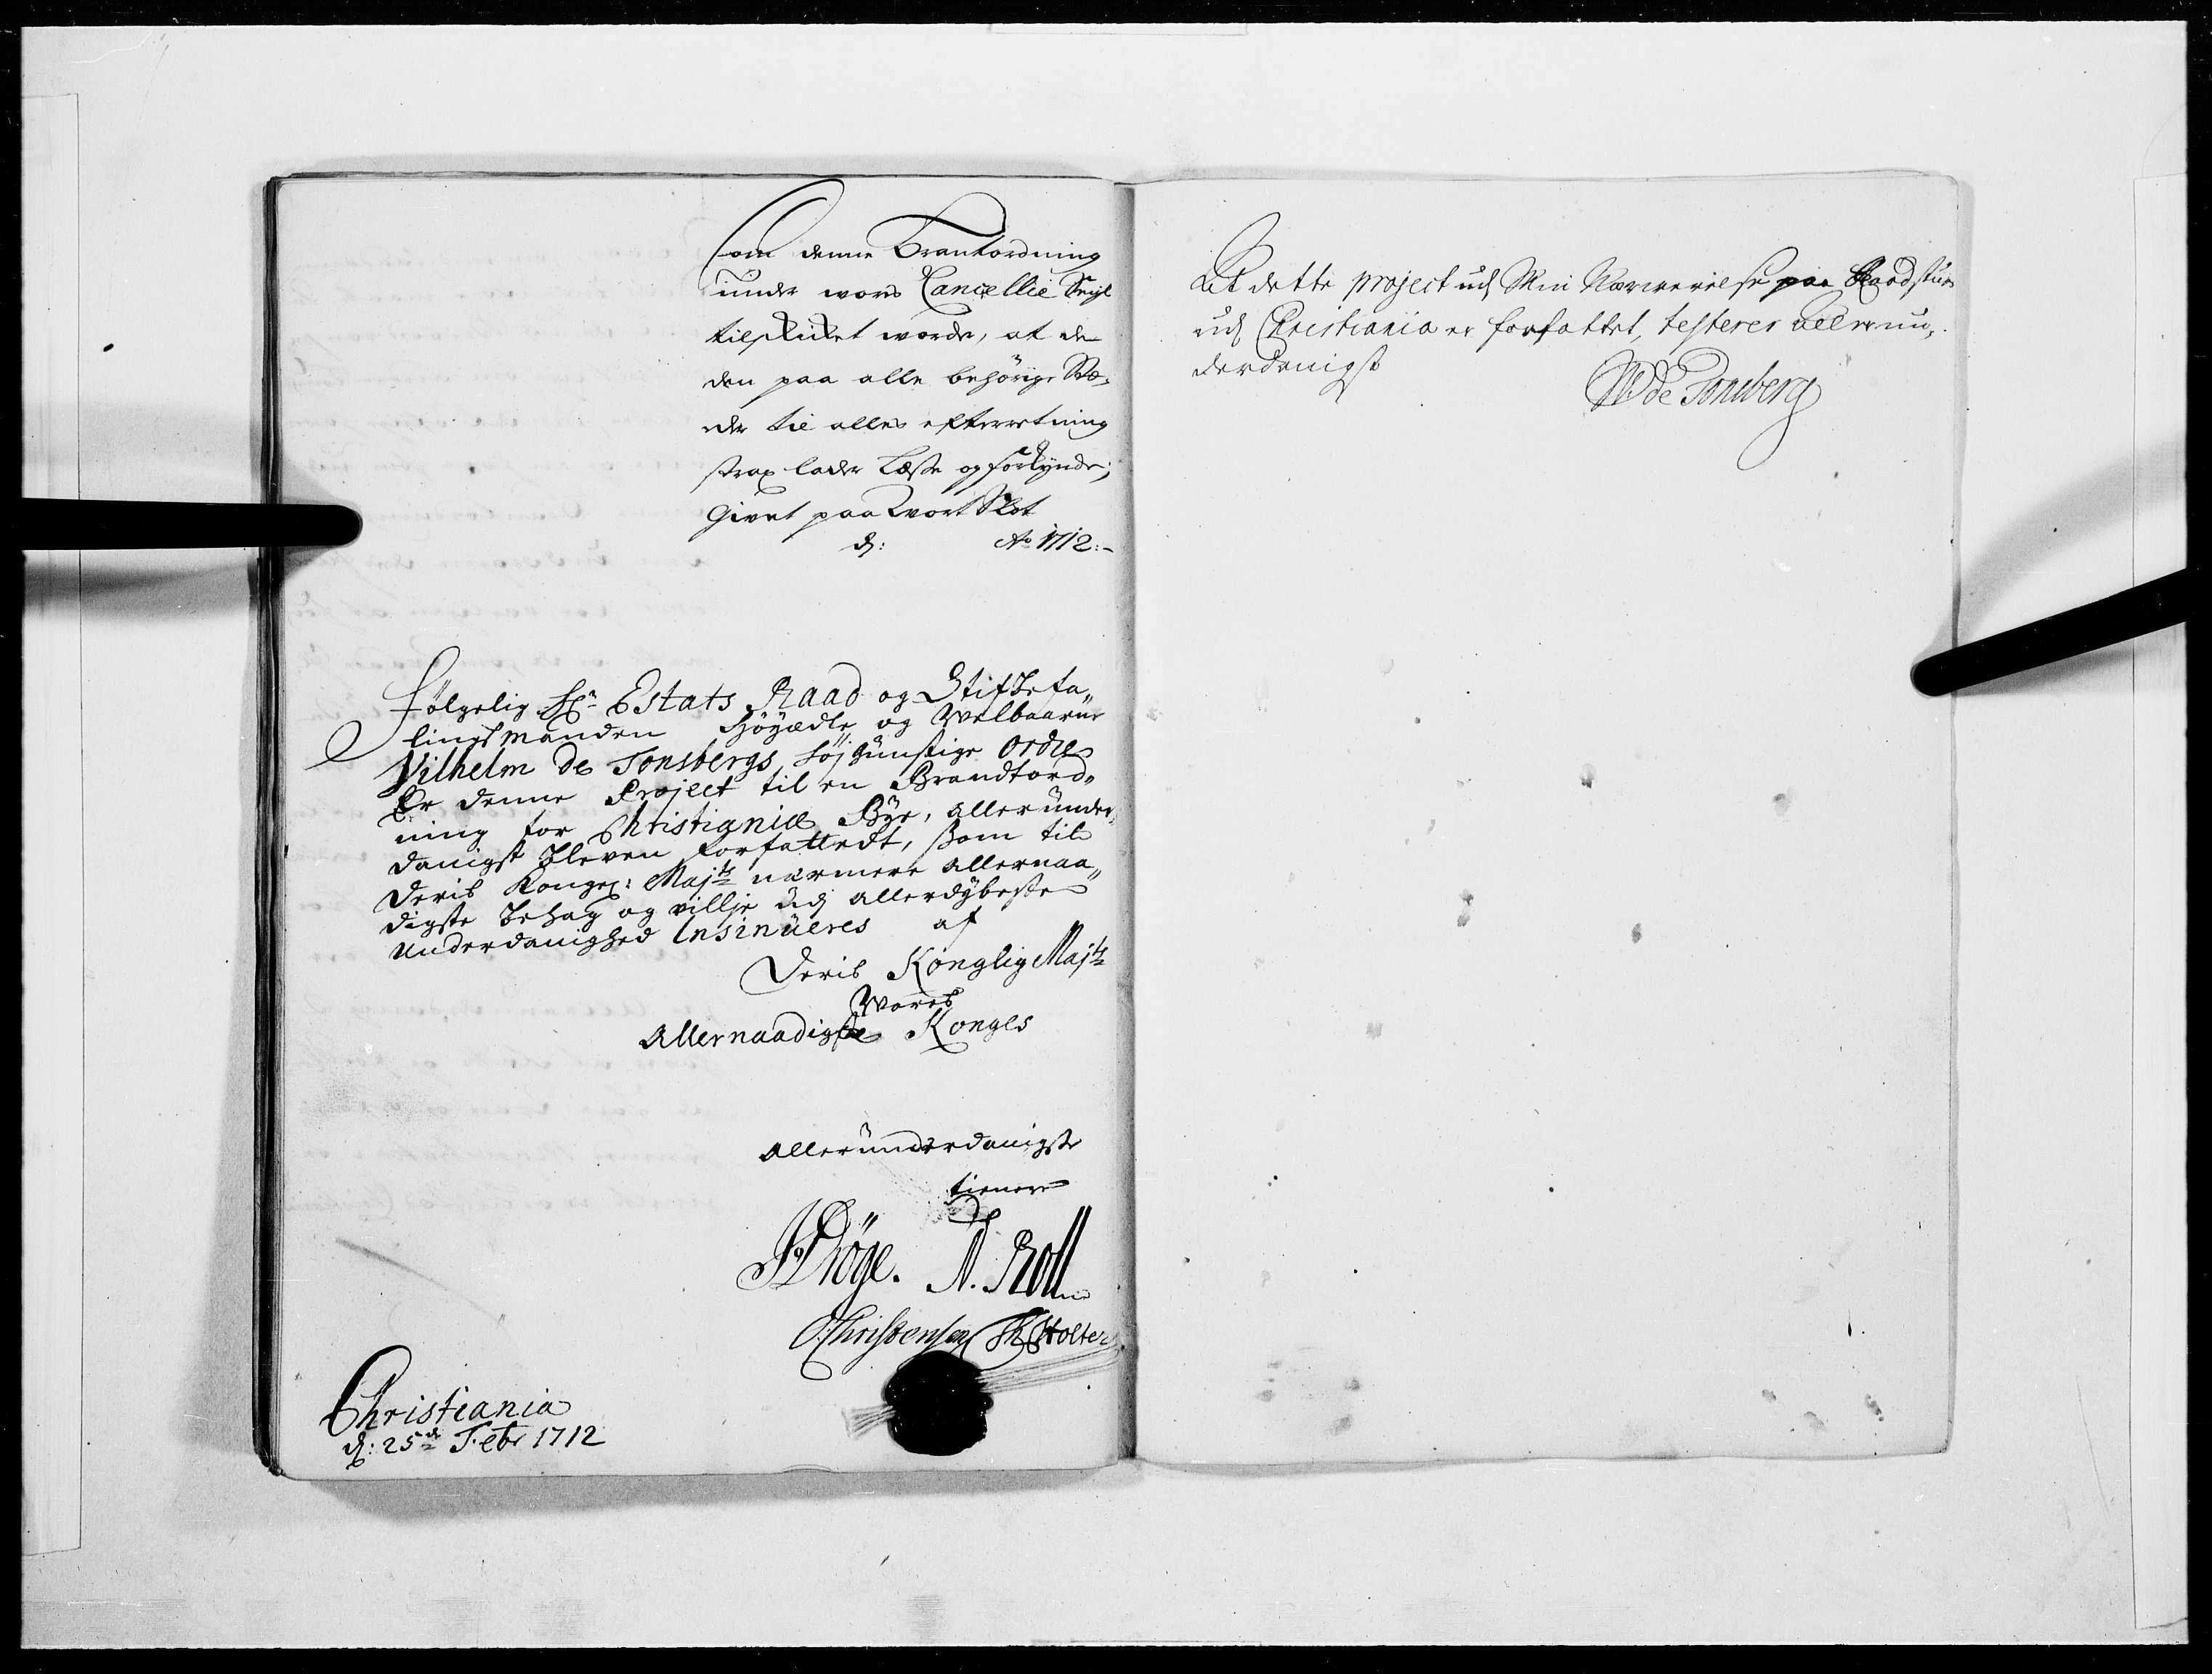 Som denne Brantordning
under wors Cancellie Seigl
tilskicket worde, at de
den paa alle behörige Stæ,
der til alles efterretning
strax lader Læse og forkynde;
Givet paa Wort Slot
d: Ao 1712:-
Fölgelig Hr Estats Raad og Stiftbefa„
lingsmanden Höyædle og Welbaarne
Vilhelm de Tonsbergs höjgunstige ordre
Er denne Project til en Brandtord„
ning for Christianiæ Bye, allerunder„
danigst bleven forfattedt, som til
Deris Kongel: Majts nærmere allernaa„
digste behag og villje udj allerdybeste
Underdanighed Insinueres af
Deris Konglig Majts
Wores
Allernaadigste Konges
allerunderdanigste
tienere
N. Roll
Christensen
Christiania
d: 25de Febr 1712
At dette project udj Min Nærwerelse paa Raadstue
udj Christiania er forfattet, testerer allerun„
derdanigst
W de Tonsberg